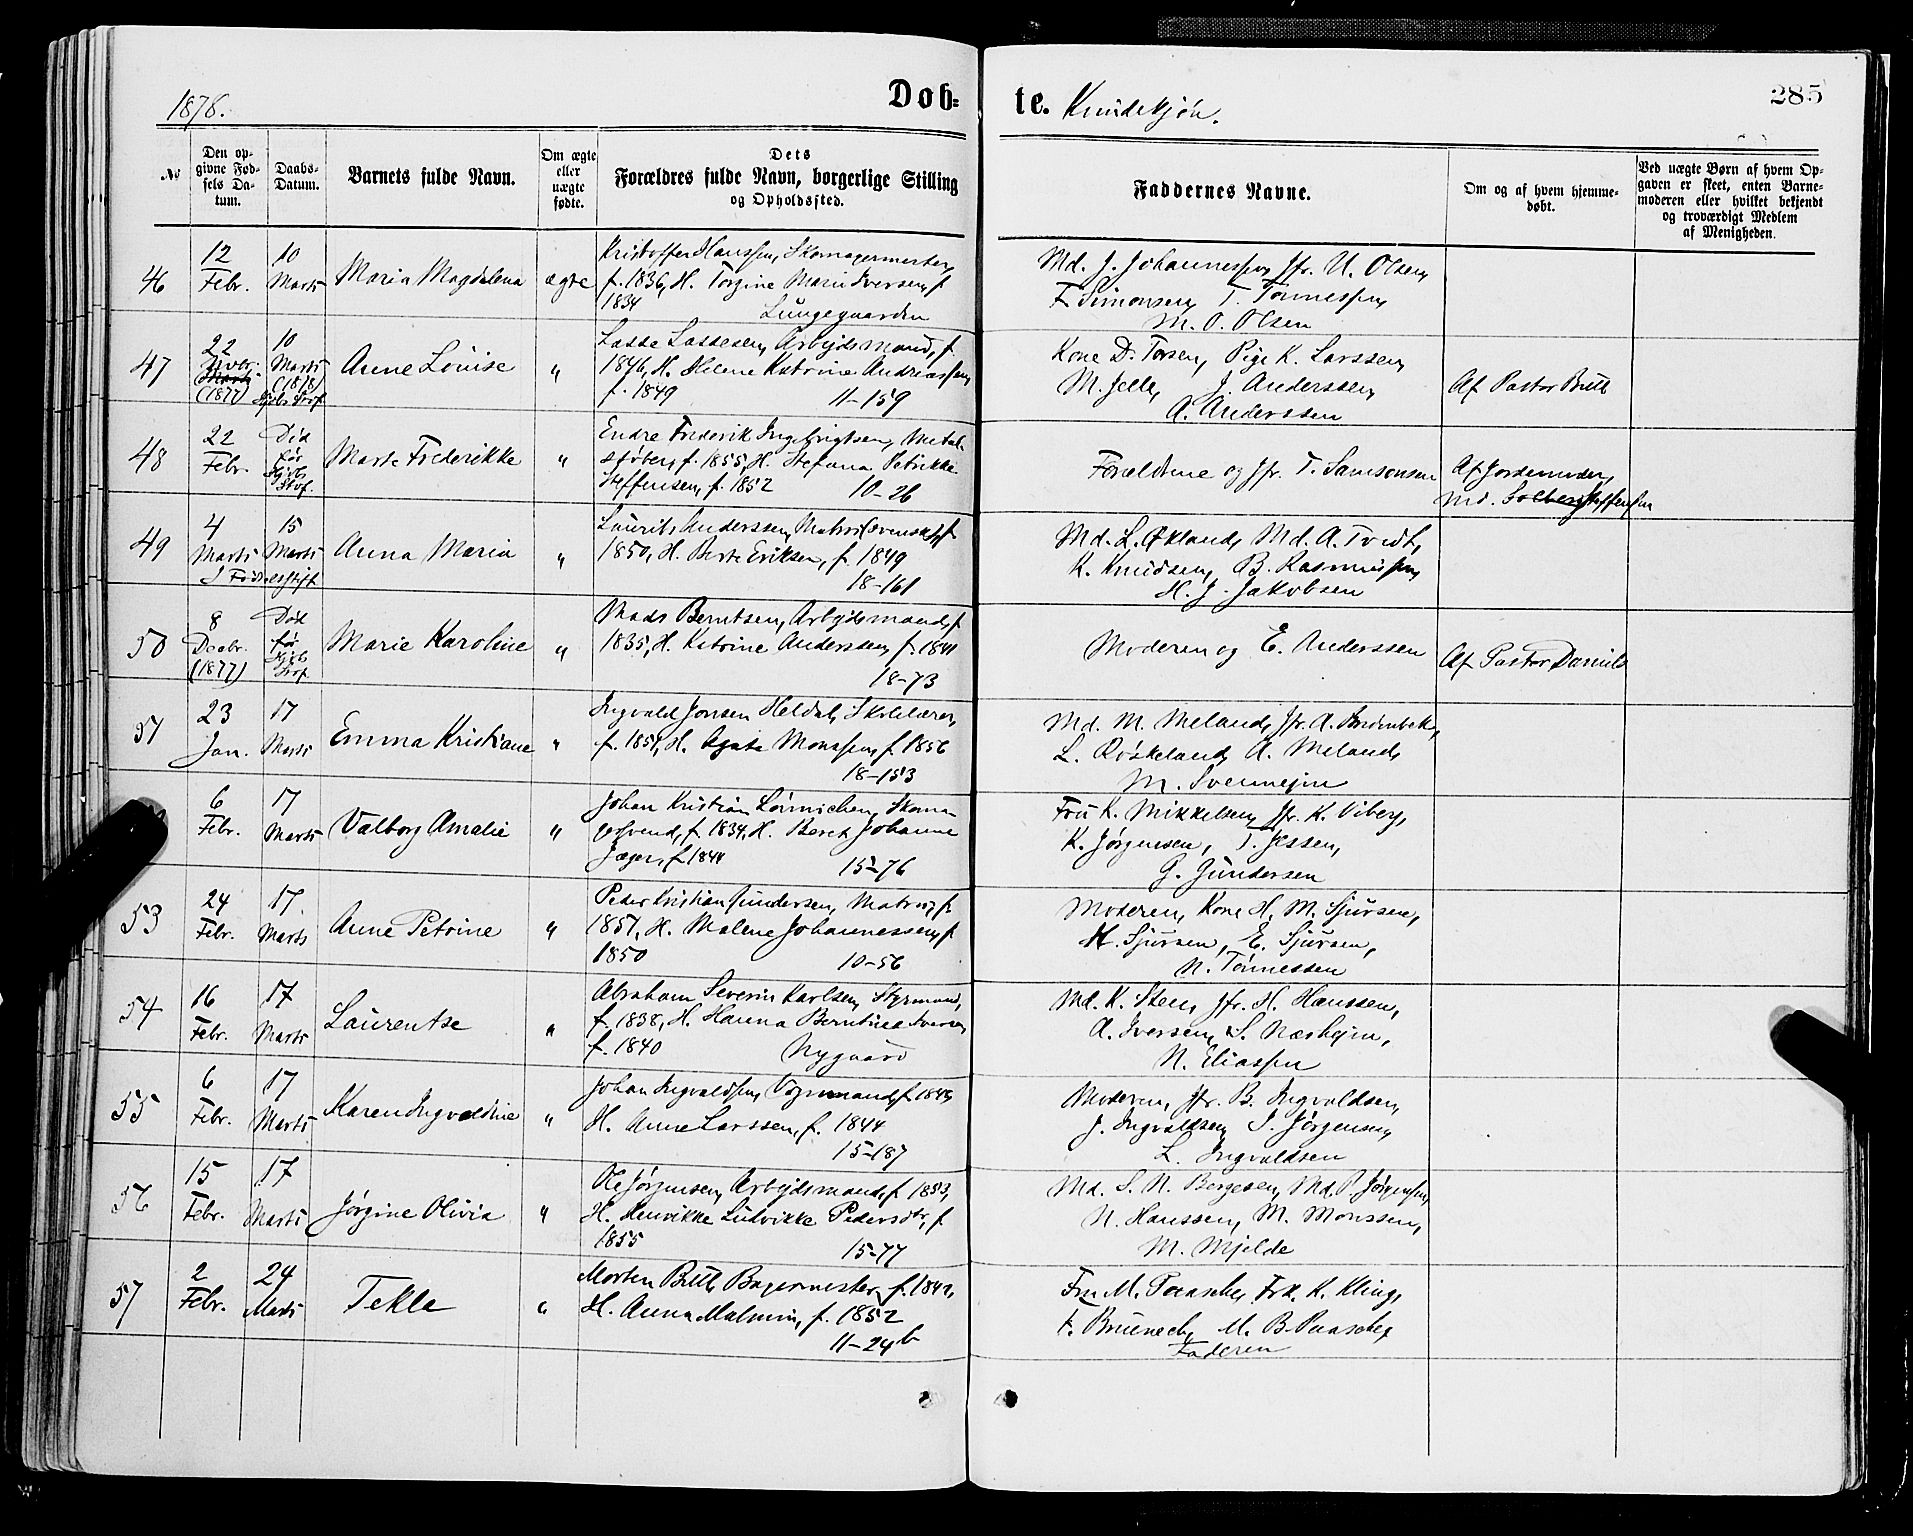 1878.
Døb-
te. Kvindekjøn.
285
No
Den op-
givne Fød-
sels Da-
tum.
Daabs-
Datum.
Barnets fulde Navn.
Om ægte
eller
uægte
fødte.
Dets
Forældres fulde Navn, borgerlige Stilling
og Opholdssted.
Faddernes Navne.
Om og af hvem hjemme-
døbt.
Ved uægte Børn af hvem Op-
gaven er skeet, enten Barne-
moderen eller hvilket bekjendt
og troværdigt Medlem
af Menigheden.
46
12
Febr.
10
Marts
Maria Magdalena
ægte
Kristoffer Hanssen, Skomagermester,
f. 1836, H. Torgine Marie Iversen, f.
1834 Lungegaarden
Md. J. Johannessen, Jfr. U. Olsen,
F. Simonsen, T. Tønnessen,
M. O. Olsen
47
22
Novbr.
(1877)
10
Marts
(1878)
Anne Louise
"
Lasse Lassesen, Arbejdsmand, f.
1846, H. Helene Katrine Andreassen,
f. 1849 11-159
Kone D. Torsen, Pige K. Larssen,
M. Jelle, J. Anderssen,
A. Anderssen
Af Pastor Bull
48
22
Febr.
Død
før
Kjbs
Stdf.
Marte Frederikke
"
Endre Frederik Ingebrigtsen, Metal-
støber, f. 1855, H. Stefana Petrikke
Steffensen, f. 1852 10-26
Forældrene og Jfr. T. Samsonsen
Af Jordemoder,
Md. Solberg Steffensen
49
4
Marts
15
Marts
I Fødselsstift
Anna Maria
"
Laurits Anderssen, Matros (svensk), f.
1850, H. Berte Eriksen, f. 1849
18-161
Md. L. Økland, Md. A. Tvedt,
K. Knudsen, B. Rasmussen,
H. J. Jakobsen
50
8
Decbr.
(1877)
Død
før
Kjbs
Stdf.
Marie Karoline
"
Mads Berntsen, Arbejdsmand, f.
1835, H. Katrine Anderssen, f. 1841
18-73
Moderen og E. Anderssen
Af Pastor Daniels
51
23
Jan.
17
Marts
Emma Kristiane
"
Ingvald Jonsen Heldal, Skolelærer,
f. 1851, H. Agata Monssen, f. 1856
18-153
Md. M. Meland, Jfr. A.
L. Røskeland, A. Meland,
M.
6
Febr.
17
Marts
Valborg Amalie
"
Johan Kristian Skoma-
gersvend, f. 1834, H. Beret Johanne
Jæger, f. 1844 15-76
Fru K. Mikkelsen, Jfr. K. Viberg,
K. Jørgensen, T. Jessen,
G. Gundersen
53
24
Febr.
17
Marts
Anne Petrine
"
Peder Kristian Gundersen, Matros, f.
1851, H. Malene Johannessen, f.
1850 10-56
Moderen, Kone H. M. Sjursen,
M. Sjursen, E. Sjursen,
N. Tønnessen
54
16
Febr.
17
Marts
Laurentse
"
Abraham Severin Karlsen, Styrmand,
f. 1838, H. Hanna Berntine Iversen,
f. 1840 Nygaard
Md. K. Steen, Jfr. H. Hanssen,
A. Iversen, S. Nærhejm,
N. Eliassen
55
6
Febr.
17
Marts
Karen Ingvaldine
"
Johan Ingvaldsen, Vognmand, f. 1843,
H. Anne Larssen, f. 1844
15-187
Moderen, Jfr. B. Ingvaldsen,
J. Ingvaldsen, I. Jørgensen,
L. Ingvaldsen
56
15
Febr.
17
Marts
Jørgine Olivia
"
Ole Jørgensen, Arbejdsmand, f. 1853,
H. Henrikke Ludvikke Pedersdtr., f.
1855 15-77
Md. S. N. Børgesen, Md. P. Jørgensen,
N. Hanssen, M. Monssen,
M. Mjelde
57
2
Febr.
24
Marts
Tekla
"
Morten Bull, Bagermester, f. 1842,
H. Anna Malmin, f. 1852
11-24b
Fru M. Paasche, Frk. K. Kling,
F. M. B. Paasche,
Faderen